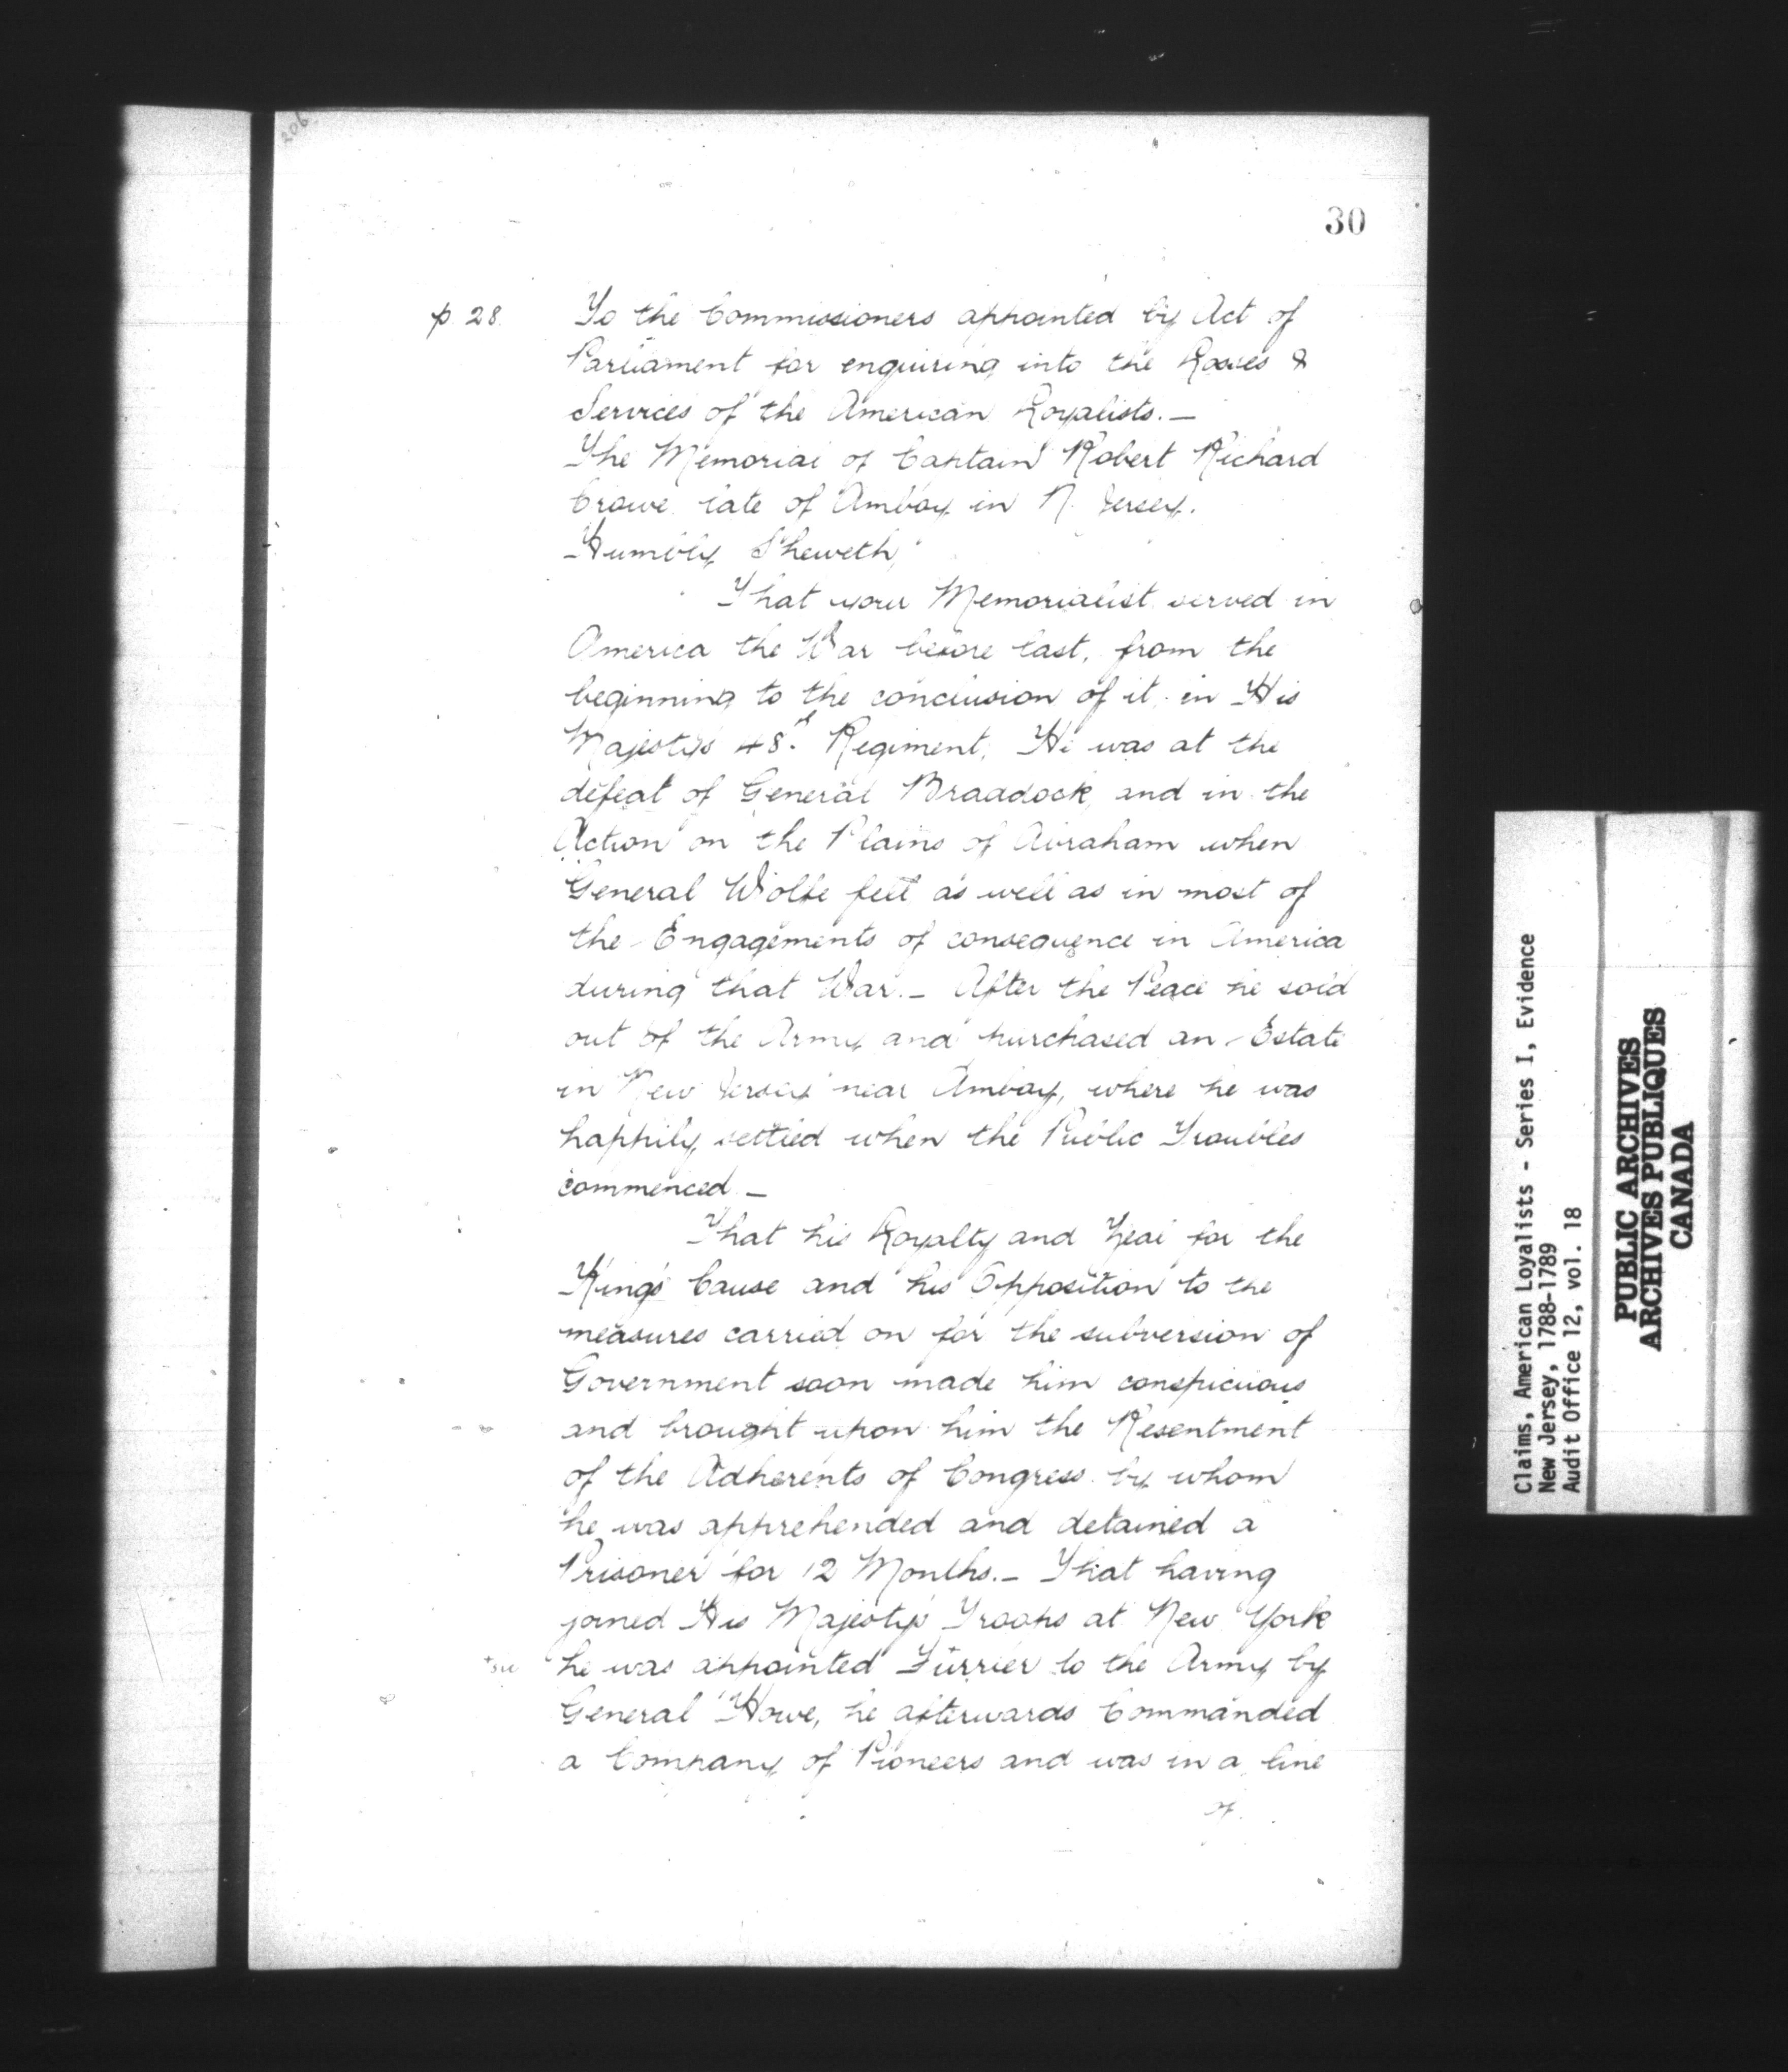 206
30
p. 28. To the Commissioners appointed by Act of
Parliament for enquiring into the Losses &
Services of the American Loyalists. —
The Memorial of Captain Robert Richard
Crowe late of Amboy in N. Jersey.
Humbly Sheweth,
That your Memorialist served in
America the War before last, from the
beginning to the conclusion of it, in His
Majesty's 48th Regiment, He was at the
defeat of General Braddock, and in the
Action on the Plains of Abraham when
General Wolfe fell as well as in most of
the Engagements of consequence in America
during that War. — After the Peace he sold
out of the Army and purchased an Estate
in New Jersey near Amboy, where he was
happily settled when the Public Troubles
commenced —
That his Loyalty and Zeal for the
King's Cause and his Opposition to the
measures carried on for the subversion of
Government soon made him conspicuous
and brought upon him the Resentment
of the Adherents of Congress by whom
he was apprehended and detained a
Prisoner for 12 Months. — That having
joined His Majesty's Troops at New York
he was appointed Furrier to the Army by
General Howe, he afterwards Commanded
a Company of Pioneers and was in a line
of
Claims, American Loyalists - Series I, Evidence
New Jersey, 1788-1789
Audit Office 12, vol. 18
PUBLIC ARCHIVES
ARCHIVES PUBLIQUES
CANADA